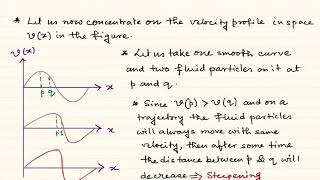 * Let us now concentrate on the velocity profile in space
v(x) in the figure.
v(x)
* Let us take one smooth curve
and two fluid particles on it at
p and q.
x
p q
* Since v(p) > v(q) and on a
trajectory the fluid particles
will always move with same
velocity, then after some time
the distance between p & q will
decrease ⇒ Steepening
x
x